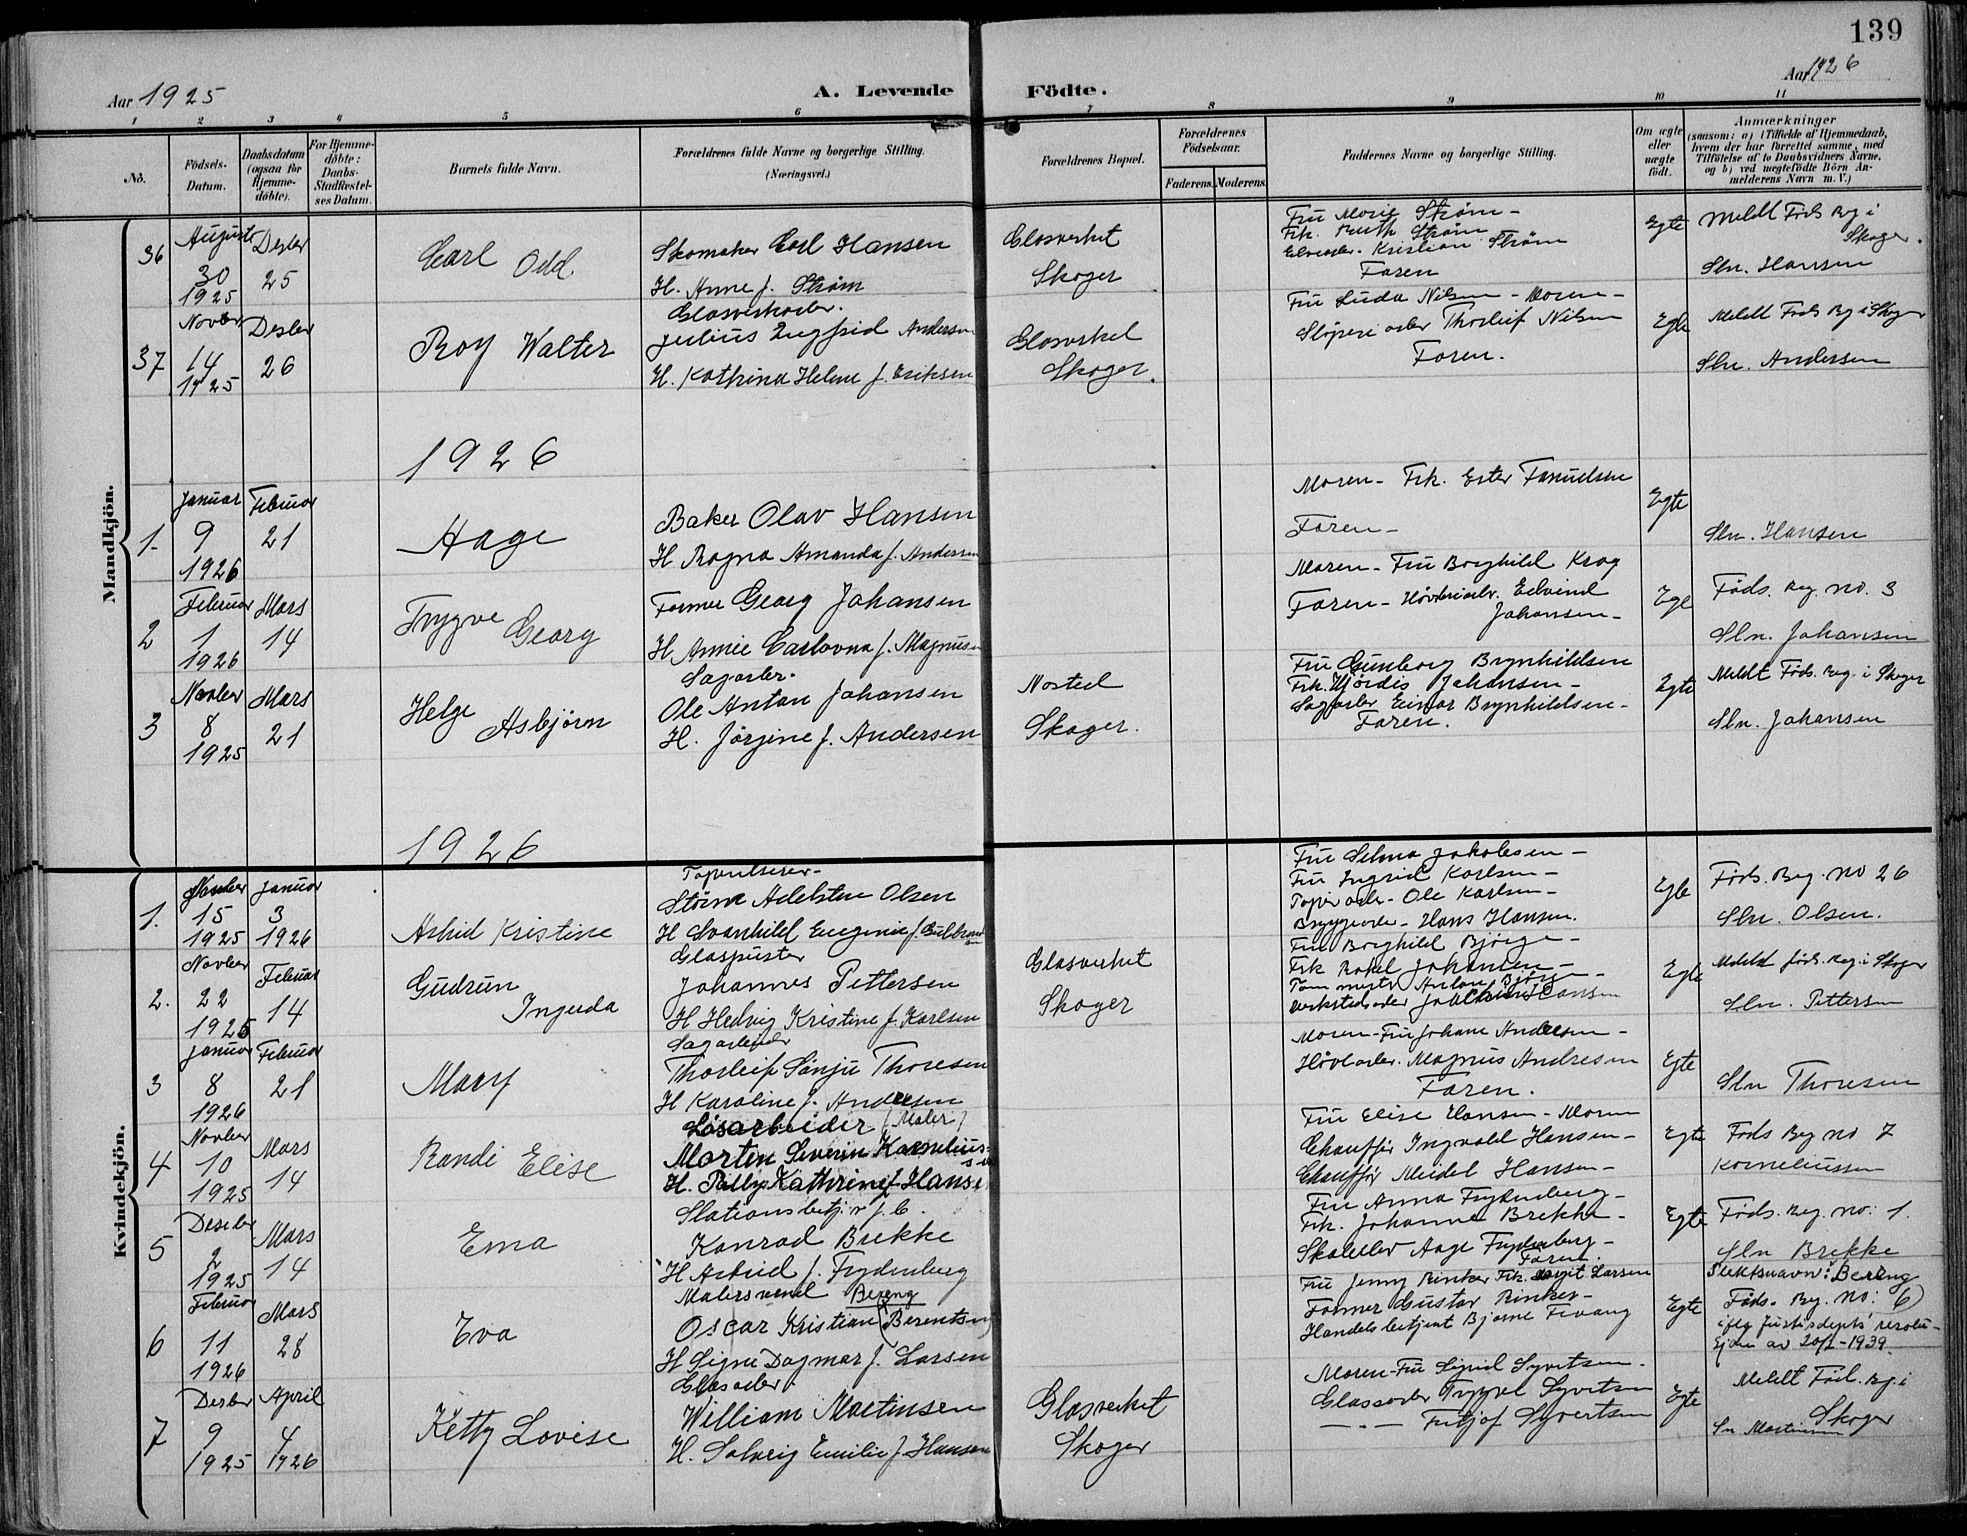 139
Aar 1925
A. Levende Födte.
Aar 1926
1 2 3 4 5 6 7 8 9 10 11
No.
Födsels-Datum.
Daabsdatum (ogsaa for Hjemme-döbte).
For Hjemme-döbte: Daabs-Stadfestel-ses Datum.
Barnets fulde Navn.
Forældrenes fulde Navne og borgerlige Stilling. (Næringsvei.)
Forældrenes Bopæl.
Forældrenes Födselsaar.
Faderens. Moderens.
Faddernes Navne og borgerlige Stilling.
Om ægte eller uægte födt.
Anmærkninger
(saasom: a) i Tilfælde af Hjemmedaab,
hvem der har forrettet samme, med
Tilföielse af to Daabsvidners Navne,
og b) ved uægtefödte Börn An-
melderens Navn m. V.)
Mandkjön.
36
August 30 1925
Desbr 25
Carl Odd
Skomaker Carl Hansen
H. Anne f. Strøm
Glasverket
Skoger
Fru Marie Strøm -
Frk. Ruth Strøm
Kristian Strøm
Faren
Egte
Meldt Føds Reg i
Skoger.
Sln. Hansen
37
Novbr 14 1925
Desbr 26
Roy Walter
Glasverksarb.
Julius Andersen
H. Kathina Helene f. Eriksen
Glasverket
Skoger.
Fru Luda Nilsen - Moren -
Sløperiarb Thorleif Nilsen
Faren.
Egte
Meldt Føds Reg i Skoger
Sln. Andersen
1926
1.
Januar 9 1926
Februar 21
Aage
Baker Olav Hansen
H Ragna Amanda f. Andersen
Moren - Frk. Ester Fanuelsen
Faren -
Egte
Sln. Hansen
2
Februar 1 1926
Mars 14
Trygve Georg
Former Georg Johansen
H Annie Carlovna f. Magnusen
Moren - Fru Borghild Krog
Faren - Høvleriarb. Edvind
Johansen -
Egte
Føds. Reg. no. 3
Sln. Johansen
3
Novbr 8 1925
Mars 21
Helge Asbjørn
Sagarb.
Ole Anton Johansen
H. Jørgine f. Andersen
Nøsted
Skoger.
Fru Gunborg Brynhildsen
Frk. Hjørdis Johansen -
Sagarb Einar Brynhildsen -
Faren.
Egte
Meldt Føds. Reg. i Skoger
Sln. Johansen
1926
Kvindekjön.
1.
November 15 1925
Januar 3 1926
Astrid Kristine
Størm Adelsten Olsen
H Svanhild Eugenie f. Gulbrandsen
Fru Selma Jakobsen -
Fru Ingrid Karlsen -
Ole Karlsen -
Bryggearb - Hans Hansen.
Egte
Føds. Reg. no 26
Sln. Olsen.
2.
Novber 22 1925
Februar 14
Gudrun Ingerda
Glaspuster
Johannes Pettersen
H Hedvig Kristine f. Karlsen
Glasverket
Skoger
Fru Borghild Bjørge -
Frk Rakel Johansen -
Anton Bjørge -
Verkstedarb Hansen
Egte
Meldt føds. Reg. i Skoger
Sln. Pettersen
3
Januar 8 1926
Februar 21
Mary
Sagarbeider
Thorleif Sønju Thoresen
H Karoline f. Andresen
Moren - Fru Johane Andresen -
Høvlarb. Magnus Andresen
Faren.
Egte
Sln Thoresen
4
Novber 10 1925
Mars 14
Randi Elise
Løsarbeider (Maler)
Morten Severin Kornelius-
sen
H. Pally Kathrine f Hansen
Fru Elise Hansen - Moren
Chauffør Ingvald Hansen -
Chauffør Meidel Hansen -
Egte
Føds Reg no 7
Korneliussen
5
Desebr 2 1925
Mars 14
Erna
Stationsbetj.
Konrad Brekke
H Astrid f. Frydenberg
Fru Anna Frydenberg -
Frk. Johanne Brekke -
Skoleelev Aage Frydenberg -
Faren.
Egte
Føds. Reg. no: 1.
Sln Brekke
6
Februar 11 1926
Mars 28
Eva
Malersvend Bereng
Oscar Kristian (Berentsen)
H Signe Dagmar f. Larsen
Fru Jenny Rinker Frk. Margit Larsen
Former Gustav Rinker -
Handelsbetjent Bjarne Tevang
Egte
Slektsnavn: Bereng
Føds. Reg. no: 6)
iflg Justisdepts resolu-
sjon av 20/1 - 1939.
7
Desbr 9 1925
April 4 1926
Ketty Lovise
Glasarb.
William Martinsen
H. Solveig Emilie f. Hansen
Glasverket
Skoger
Moren - Fru Sigrid Syvertsen.
Glassarb Trygve Syvertsen
- - - Fritjof Syvertsen
Egte
Meldt Fød. Reg. i
Skoger
Sn Martinsen